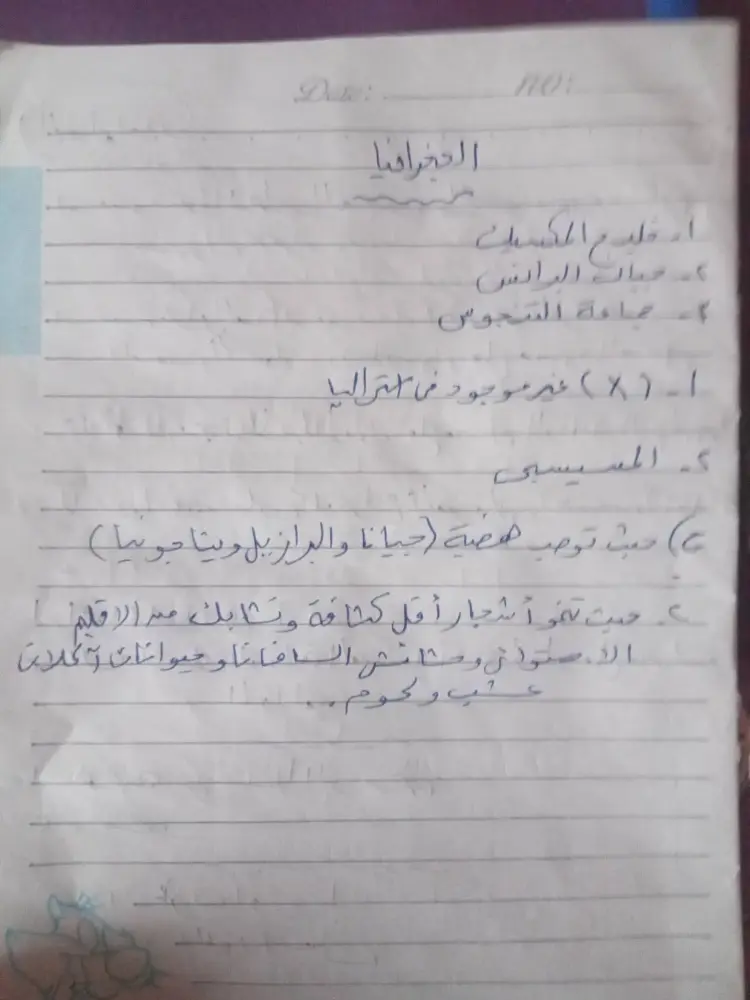 Date: NO:
الجغرافيا
١- خليج المكسيك
٢- جبال الدانس
٣- جماعة التنجوس
١- (X) غير موجود في استراليا
٢- المسيسبى
ج) حيث توجد هضبة (جيانا والبرازيل وبتاجونيا)
٢- حيث تنمو أشجار أقل كثافة وتشابك من الاقليم
الاستوائى وحشائش السافانا وحيوانات آكلات
عشب ولحوم ..